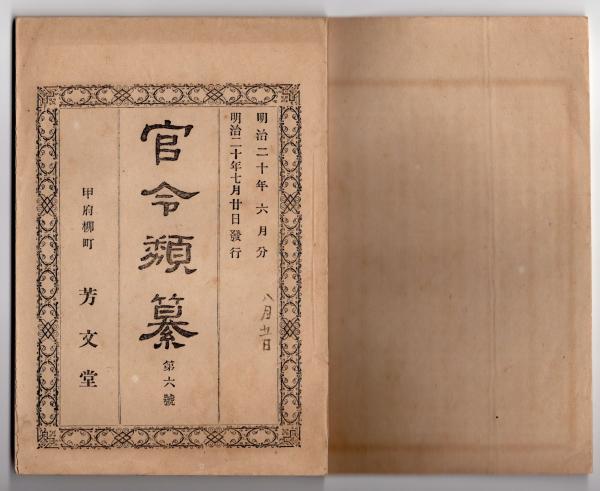 明治二十年六月分
明治二十年七月廿日發行
八月五日
官令類纂
第六號
甲府柳町
芳文堂